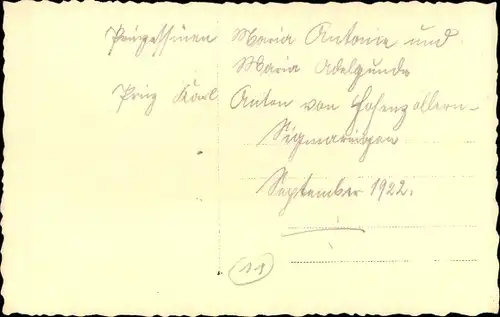 Prinzessinen Maria Antonie und
Maria Adelgunde
Prinz Karl Anton von Hohenzollern-
Sigmaringen
September 1922.
11